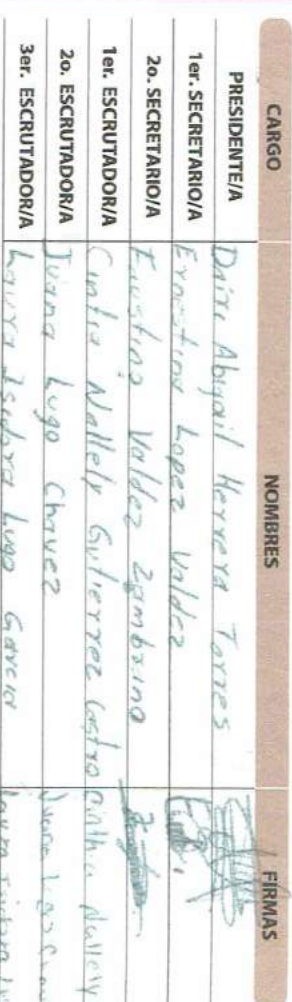 CARGO NOMBRES FIRMAS
PRESIDENTE/A Daira Abigail Herrera Torres
1er. SECRETARIO/A Ernestina Lopez Valdez
2o. SECRETARIO/A Faustino Valdez Zambrano
1er. ESCRUTADOR/A Cintia Nallely Gutierrez Castro Cinthia Nallely
2o. ESCRUTADOR/A Juana Lugo Chavez Juana Lugo
3er. ESCRUTADOR/A Laura Isidora Lugo Garcia Laura Isidora